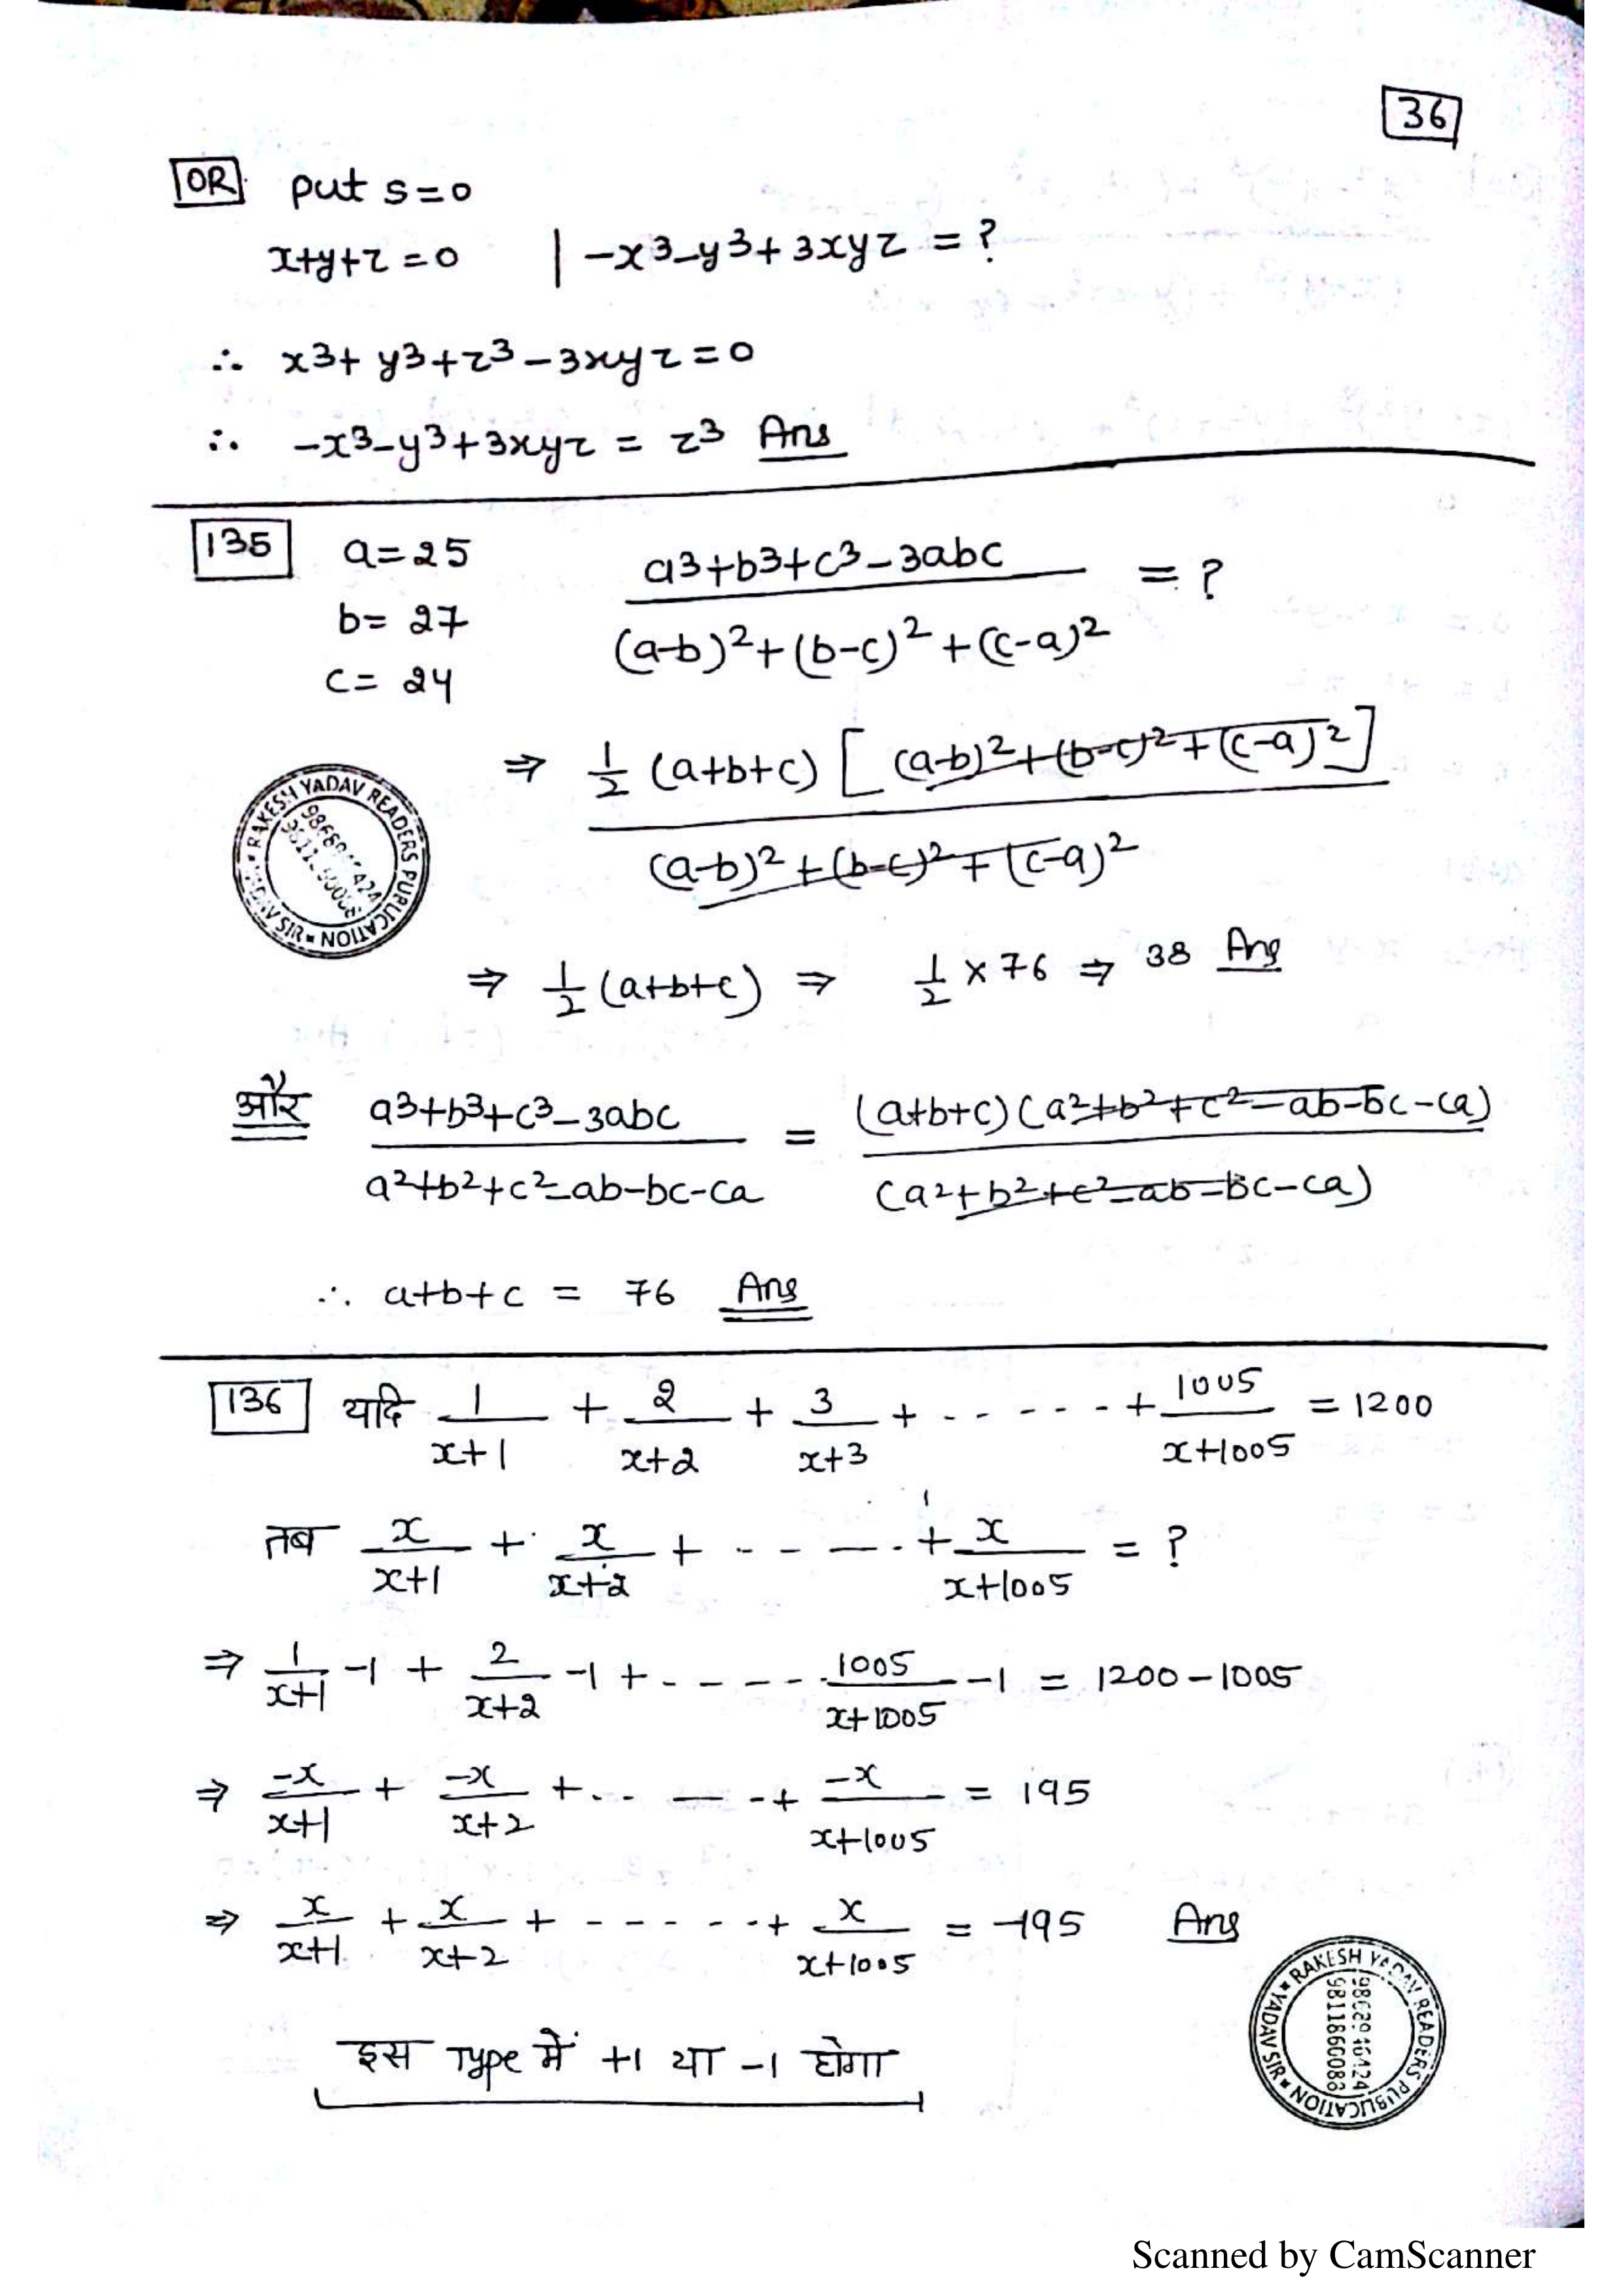 36
OR put s=0
x+y+z=0 | -x³-y³+3xyz = ?
∴ x³+y³+z³-3xyz=0
∴ -x³-y³+3xyz = z³ Ans
135 a=25 (a³+b³+c³-3abc)/((a-b)²+(b-c)²+(c-a)²) = ?
b= 27
c= 24
⇒ 1/2 (a+b+c) [(a-b)²+(b-c)²+(c-a)²] / (a-b)²+(b-c)²+(c-a)²
RAKESH YADAV READERS PUBLICATION YADAV SIR
⇒ 1/2 (a+b+c) ⇒ 1/2 × 76 ⇒ 38 Ans
और (a³+b³+c³-3abc)/(a²+b²+c²-ab-bc-ca) = (a+b+c)(a²+b²+c²-ab-bc-ca)/(a²+b²+c²-ab-bc-ca)
∴ a+b+c = 76 Ans
136 यदि 1/(x+1) + 2/(x+2) + 3/(x+3) + ------ + 1005/(x+1005) = 1200
तब x/(x+1) + x/(x+2) + ----- + x/(x+1005) = ?
⇒ 1/(x+1) -1 + 2/(x+2) -1 + ----- 1005/(x+1005) -1 = 1200-1005
⇒ -x/(x+1) + -x/(x+2) + ..---+ -x/(x+1005) = 195
⇒ x/(x+1) + x/(x+2) + ------+ x/(x+1005) = -195 Ans
इस Type में +1 या -1 होगा
RAKESH YADAV READERS PUBLICATION YADAV SIR
9811860088
Scanned by CamScanner